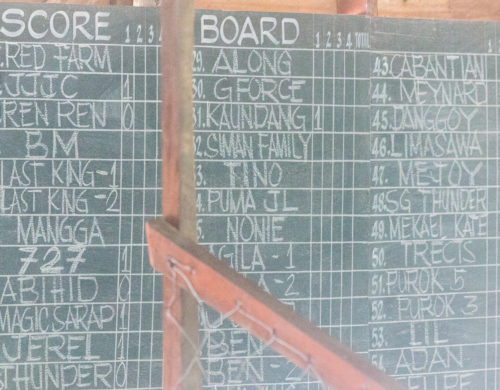 SCORE BOARD
1 2 3
RED FARM
JJJC 1
REN REN 0
BM
LAST KING -1
LAST KING -2
MANGGA
727 1
ABIHID 0
MAGIC SARAP 1
JEREL 1
THUNDER 0
1 2 3 4 TOTAL
29. ALONG
30. GFORCE
31. KAUNDANG 1
2. SIMAN FAMILY
3. TINO
4. PUMA JL
5. NONIE
AGILA - 1
A - 2
BEN -
BEN - 2
43. CABANTIAN
44. MEYNARD
45. DANGGOY
46. LIMASAWA
47. MEJOY
48. SG THUNDER
49. MEKAEL KATE
50. TRECIS
51. PUROK 5
52. PUROK 3
53. LIL
54. ADAN